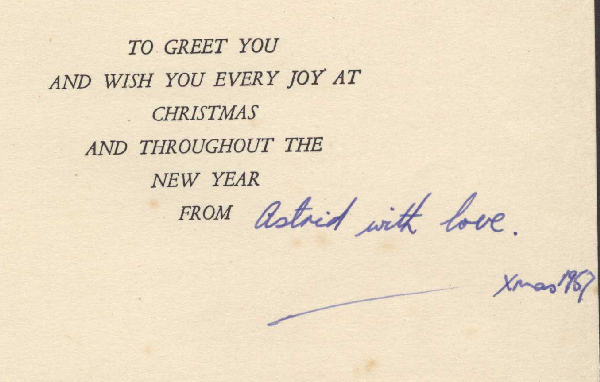 TO GREET YOU
AND WISH YOU EVERY JOY AT
CHRISTMAS
AND THROUGHOUT THE
NEW YEAR
FROM Astrid with love.
Xmas 1967